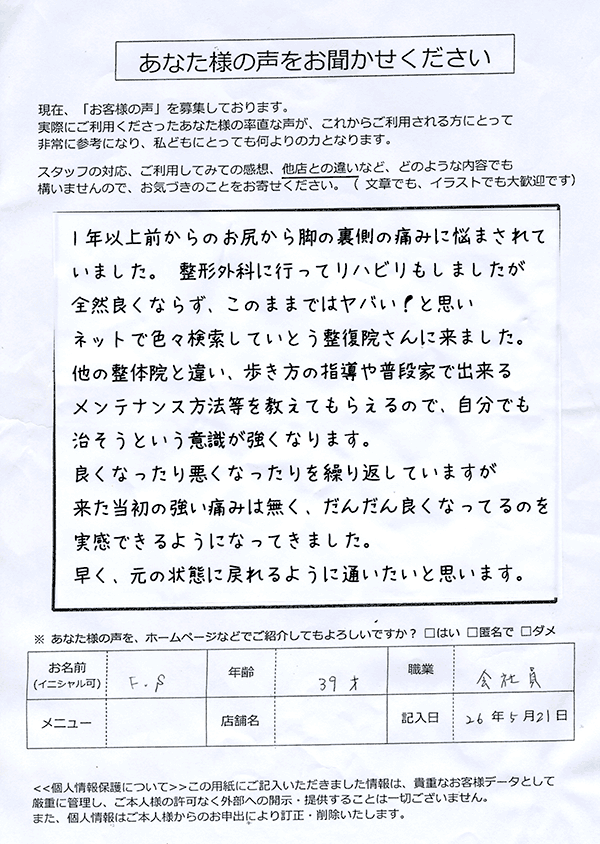 あなた様の声をお聞かせください
現在、「お客様の声」を募集しております。
実際にご利用くださったあなた様の率直な声が、これからご利用される方にとって
非常に参考になり、私どもにとっても何よりの力となります。
スタッフの対応、ご利用してみての感想、他店との違いなど、どのような内容でも
構いませんので、お気づきのことをお寄せください。（ 文章でも、イラストでも大歓迎です）
1年以上前からのお尻から脚の裏側の痛みに悩まされて
いました。 整形外科に行ってリハビリもしましたが
全然良くならず、このままではヤバい！と思い
ネットで色々検索していとう整復院さんに来ました。
他の整体院と違い、歩き方の指導や普段家で出来る
メンテナンス方法等を教えてもらえるので、自分でも
治そうという意識が強くなります。
良くなったり悪くなったりを繰り返していますが
来た当初の強い痛みは無く、だんだん良くなってるのを
実感できるようになってきました。
早く、元の状態に戻れるように通いたいと思います。
※ あなた様の声を、ホームページなどでご紹介してもよろしいですか？ □はい □匿名で □ダメ
お名前 (イニシャル可) F.S 年齢 39才 職業 会社員
メニュー 店舗名 記入日 26年5月21日
<<個人情報保護について>>この用紙にご記入いただきました情報は、貴重なお客様データとして
厳重に管理し、ご本人様の許可なく外部への開示・提供することは一切ございません。
また、個人情報はご本人様からのお申出により訂正・削除いたします。